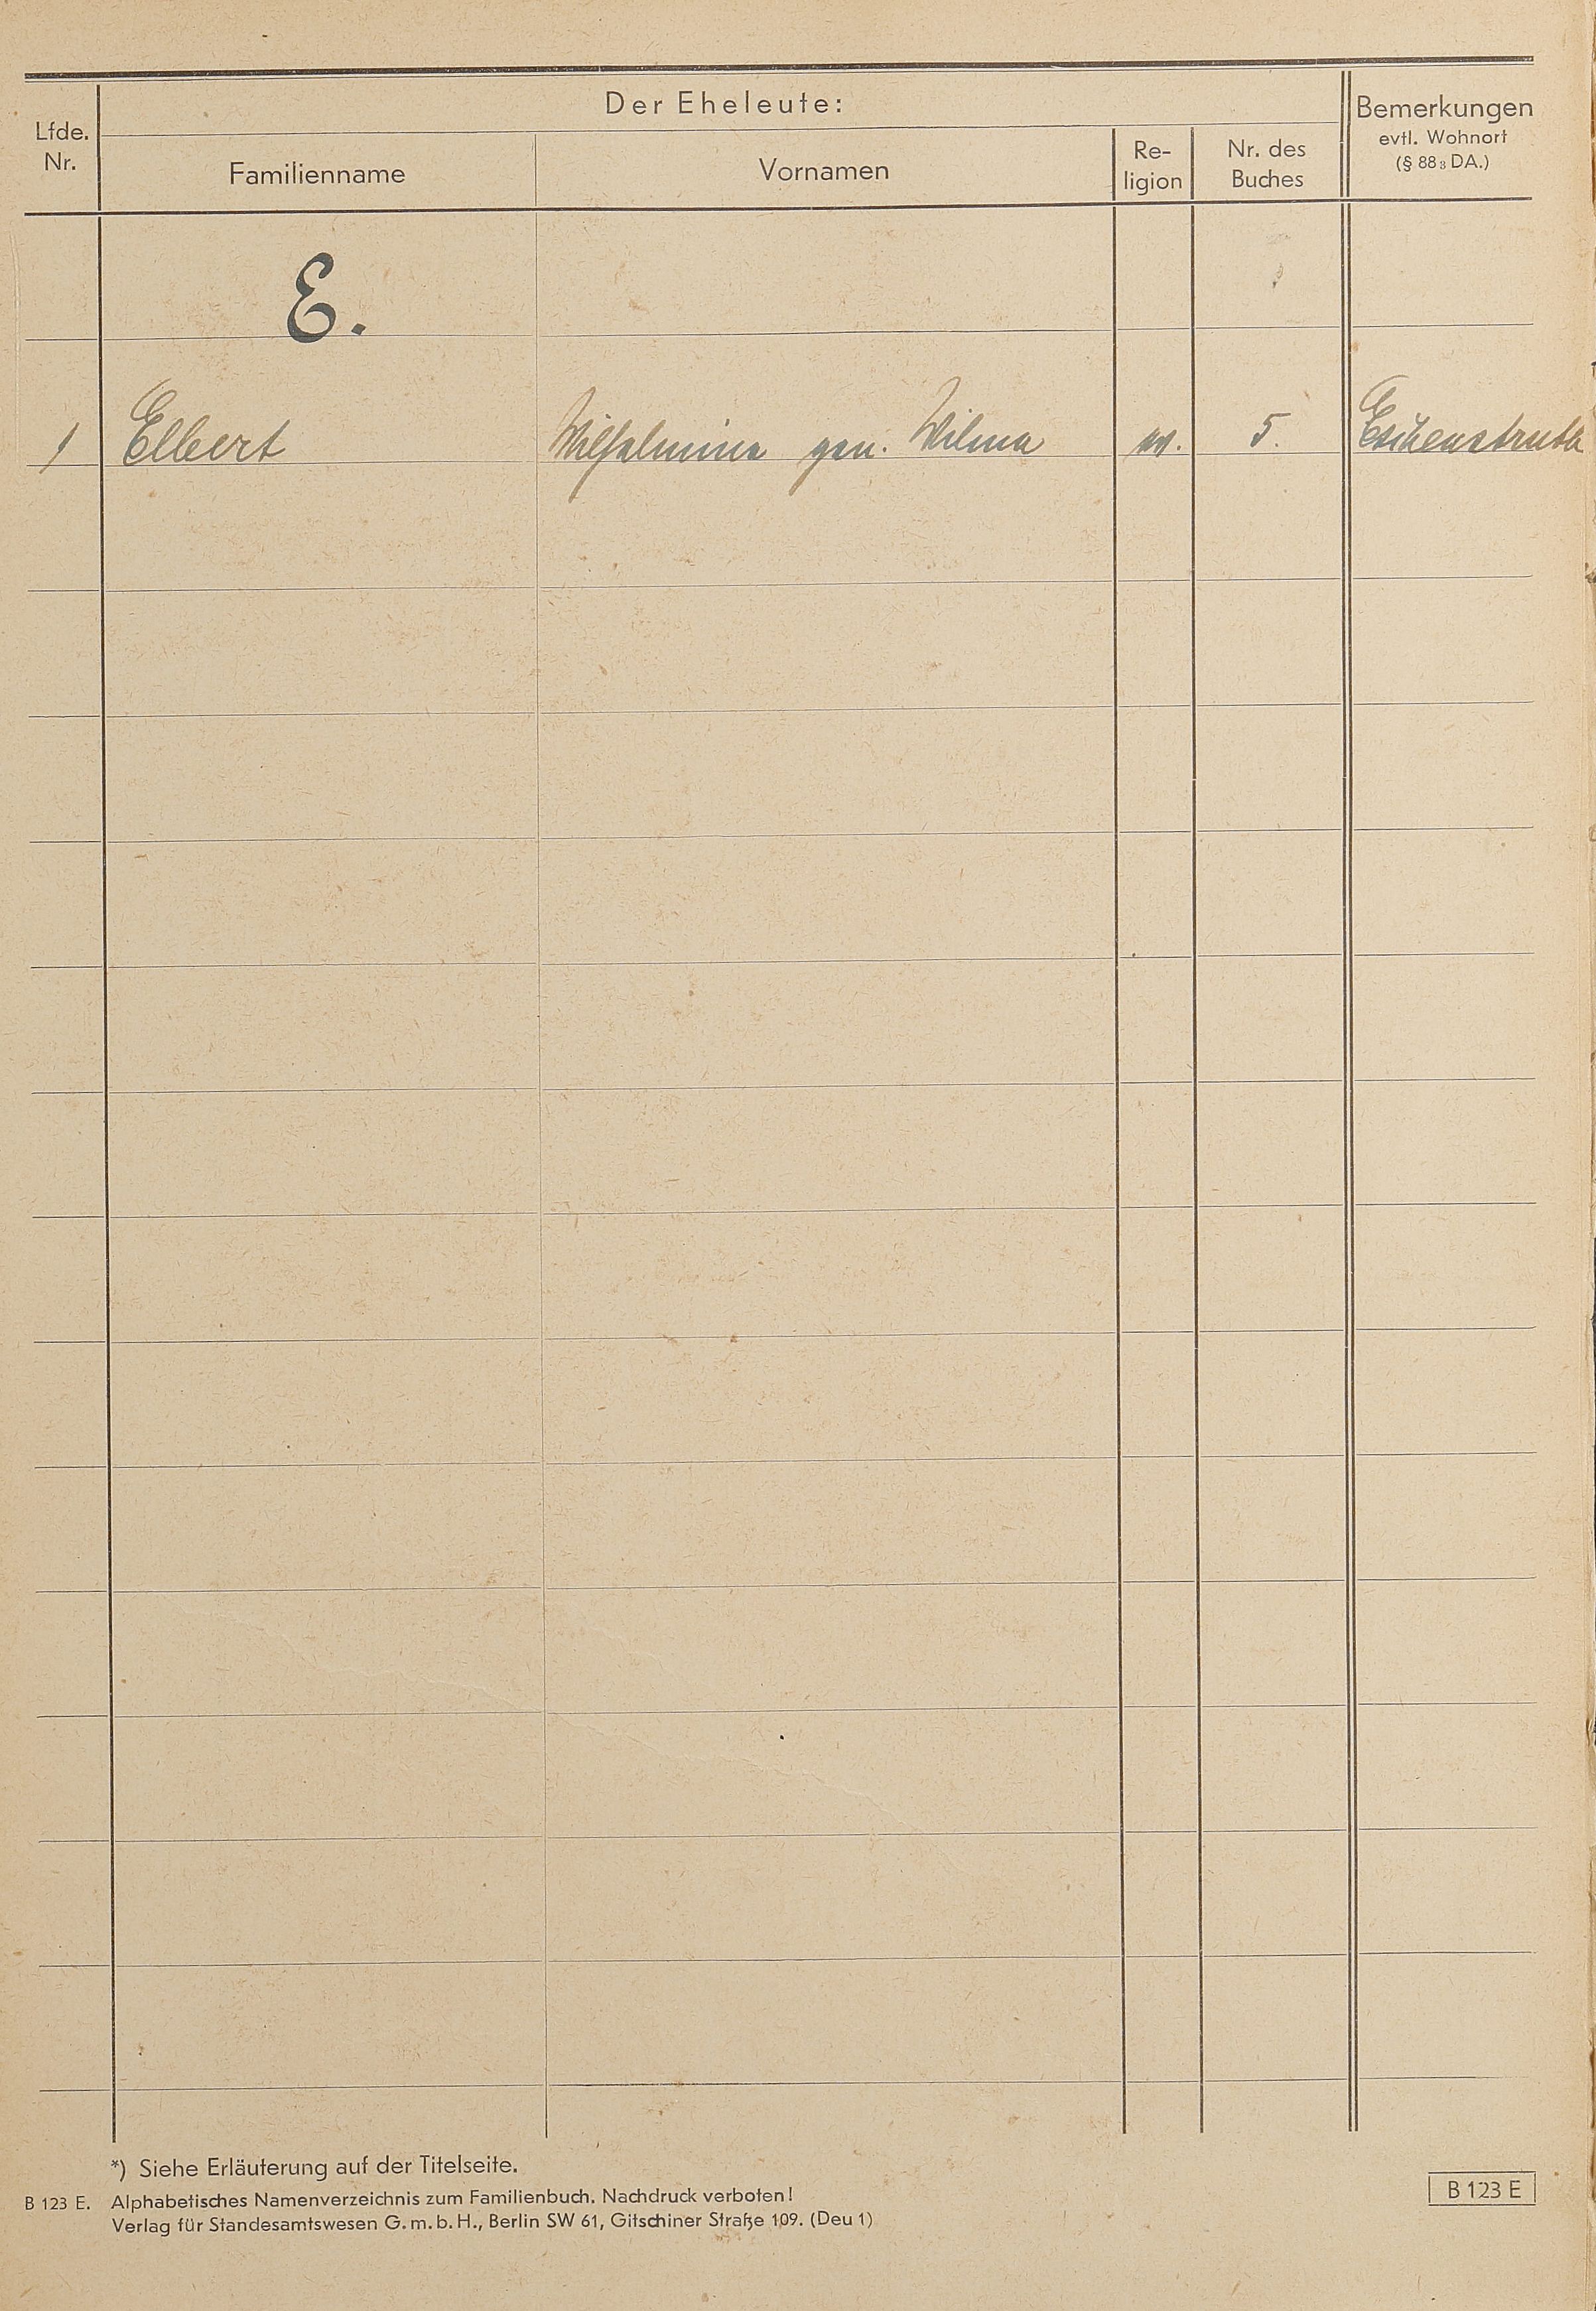 Lfde. Nr.
Der Eheleute:
Familienname
Vornamen
Re-
ligion
Nr. des
Buches
Bemerkungen
evtl. Wohnort
(§ 88 3 DA.)
E.
1 Elbert Wilhelmina gen. Wilma ev. 5. Eschenstruth
*) Siehe Erläuterung auf der Titelseite.
B 123 E. Alphabetisches Namenverzeichnis zum Familienbuch. Nachdruck verboten!
Verlag für Standesamtswesen G.m.b.H., Berlin SW 61, Gitschiner Straße 109. (Deu 1)
B 123 E